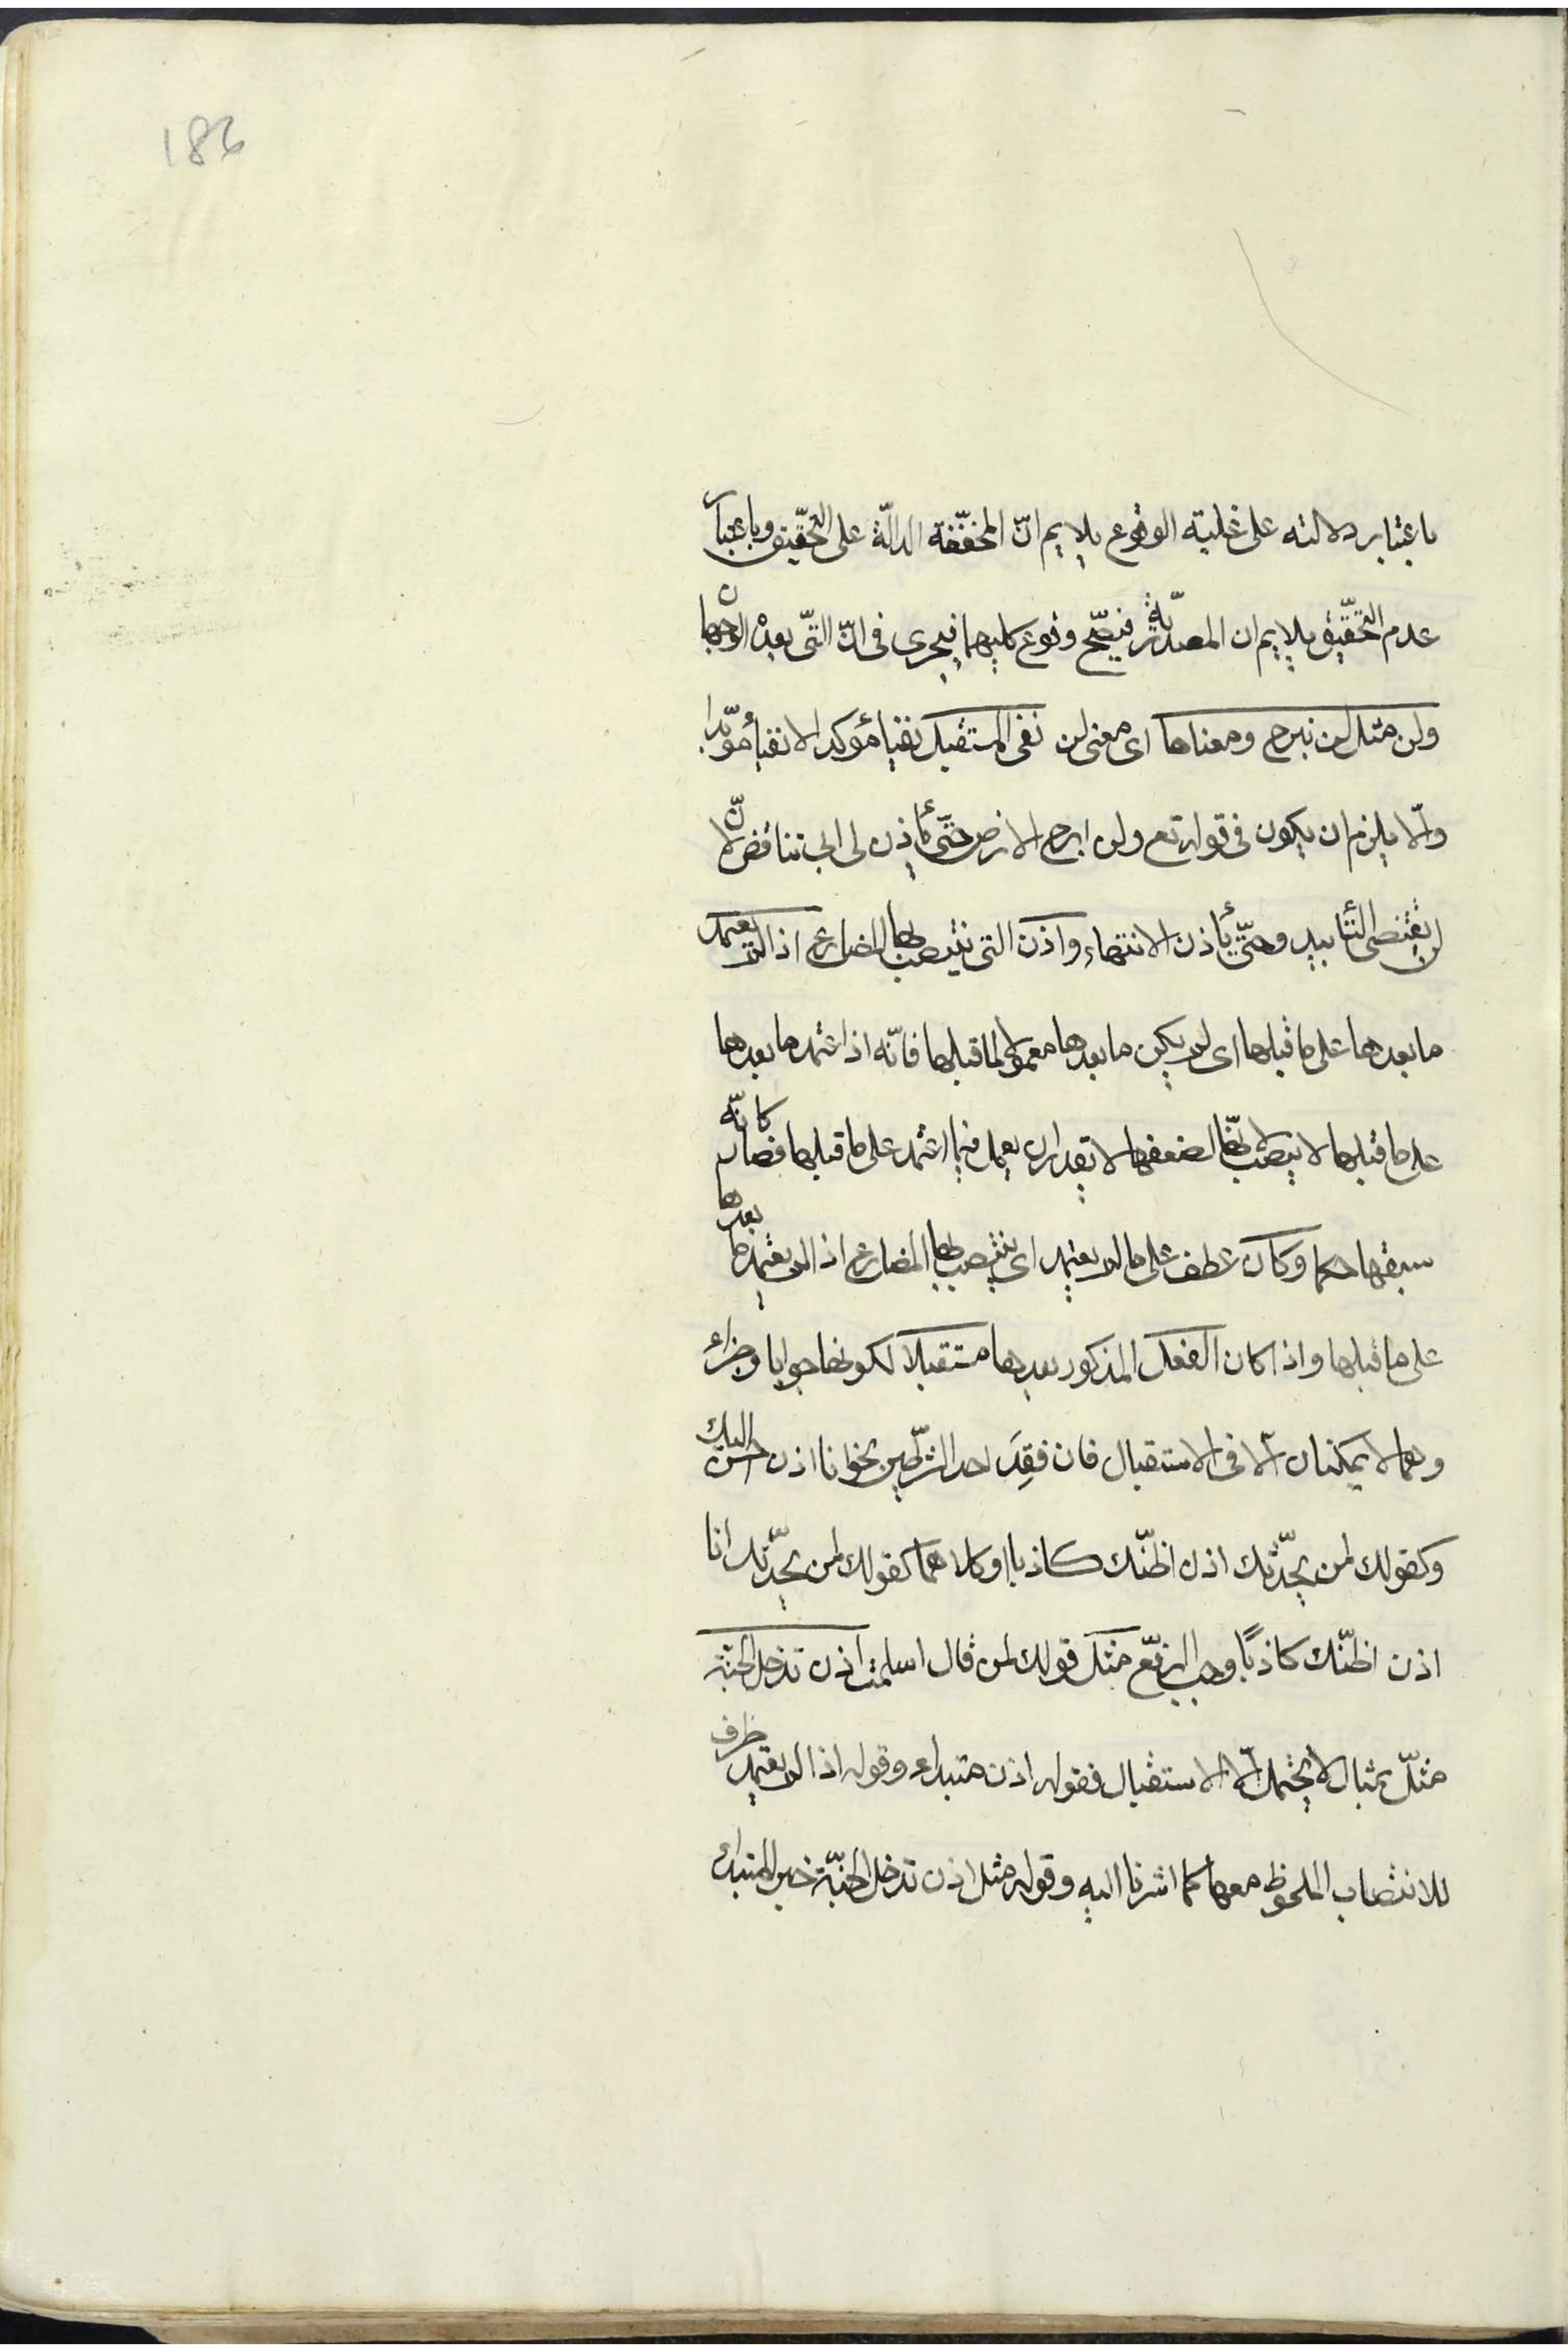 186
باعتبار دلالته على غلبة الوقوع يلايم انّ المخفّفة الدالّة على التحقّيق وباعتبار
عدم التحقّيق يلايم ان المصدريّة فيصّح وقوع كليهما فيجرى فى انّ التّى بعده الوجهان
ولن مثل لن نبرح ومعناها اى معنى لن نفى المستقبل نفيا مؤكدا لا نفيا مؤبّدا
والّا يلزم ان يكون فى قوله تع ولن ابرح الارض حتّى يأذن لى ابى تناقض لانّ
لن يقتضى التأبيد وحتّى يأذن الانتهاء واذن التى ينتصب بها المضارع اذا لم يعتمد
ما بعدها على ما قبلها اى لم يكن ما بعدها معمولا لما قبلها فانّه اذا اعتمد ما بعدها
على ما قبلها لا ينتصب لانّها لضعفها لا تقدر ان يعمل فيما اعتمد على ما قبلها فصار كانّه
سبقها حكما وكان عطف على ما لم يعتمد اى ينتصب بها المضارع اذا لم يعتمد ما بعدها
على ما قبلها واذا كان الفعل المذكور بعدها مستقبلا لكونها جوابا وجزاء
وهما لا يمكنان الّا فى الاستقبال فان فقِدَ احد الشرطين نحو انا اذن احسن اليك
وكقولك لمن يحدّثك اذن اظنّك كاذبا او كلاهما كقولك لمن يحدّثك انا
اذن اظنّك كاذبًا وجب الرفع مثل قولك لمن قال اسلمت اذن تدخل الجنّة
مثّل بمثال لا يحتمل الّا الاستقبال فقوله اذن مبتداء وقوله اذا لم يعتمد ظرف
للانتصاب الملحوظ معها كما اشرنا اليه وقوله مثل اذن تدخل الجنّة خبر المبتداء